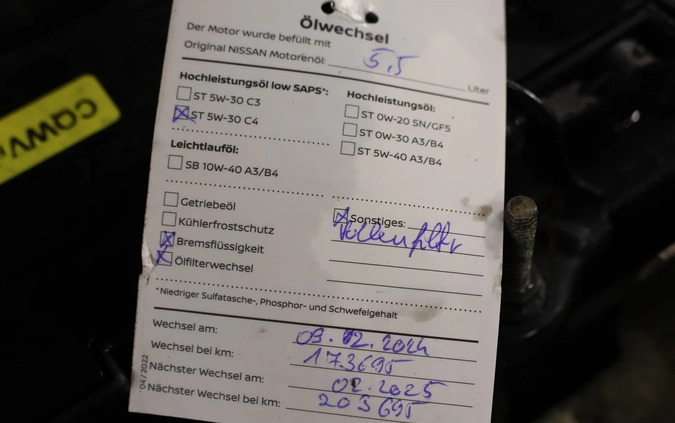 Ölwechsel
Der Motor wurde befüllt mit
Original NISSAN Motorenöl: 5,5 Liter
Hochleistungsöl low SAPS*:
ST 5W-30 C3
ST 5W-30 C4
Hochleistungsöl:
ST 0W-20 SN/GF5
ST 0W-30 A3/B4
ST 5W-40 A3/B4
Leichtlauföl:
SB 10W-40 A3/B4
Getriebeöl
Kühlerfrostschutz
Bremsflüssigkeit
Ölfilterwechsel
Sonstiges:
Pollenfilter
*Niedriger Sulfatasche-, Phosphor- und Schwefelgehalt
Wechsel am: 09.02.2024
Wechsel bei km: 173695
Nächster Wechsel am: 02.2025
Nächster Wechsel bei km: 203695
04/2022